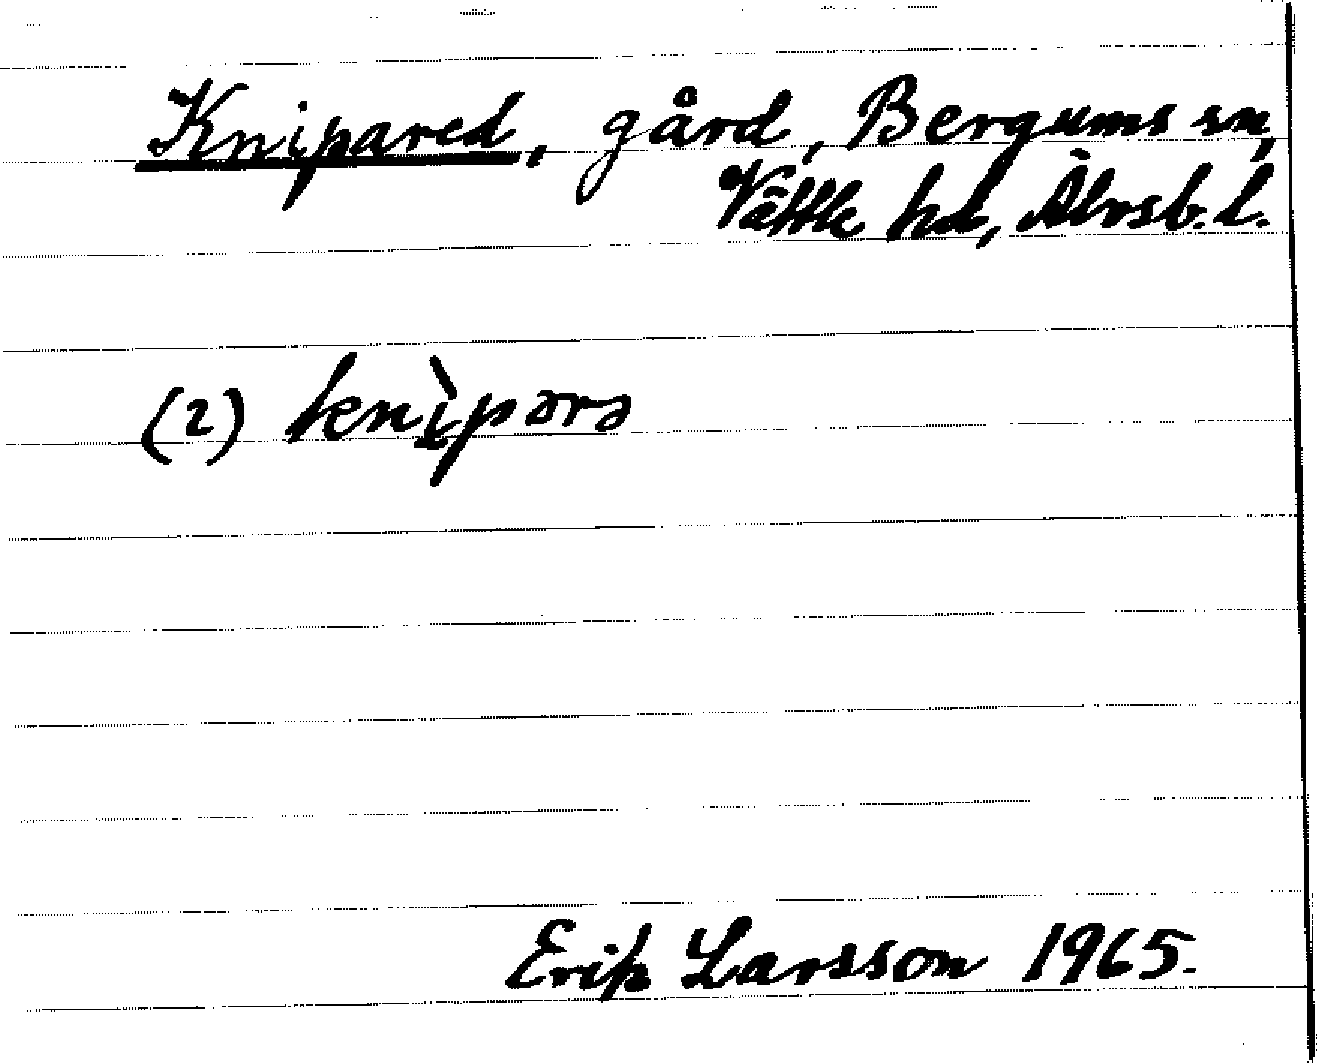 Knipared, gård, Bergums sn,
Vättle hd, Älvsb. l.
(2) knìpərə
Erik Larsson 1965.